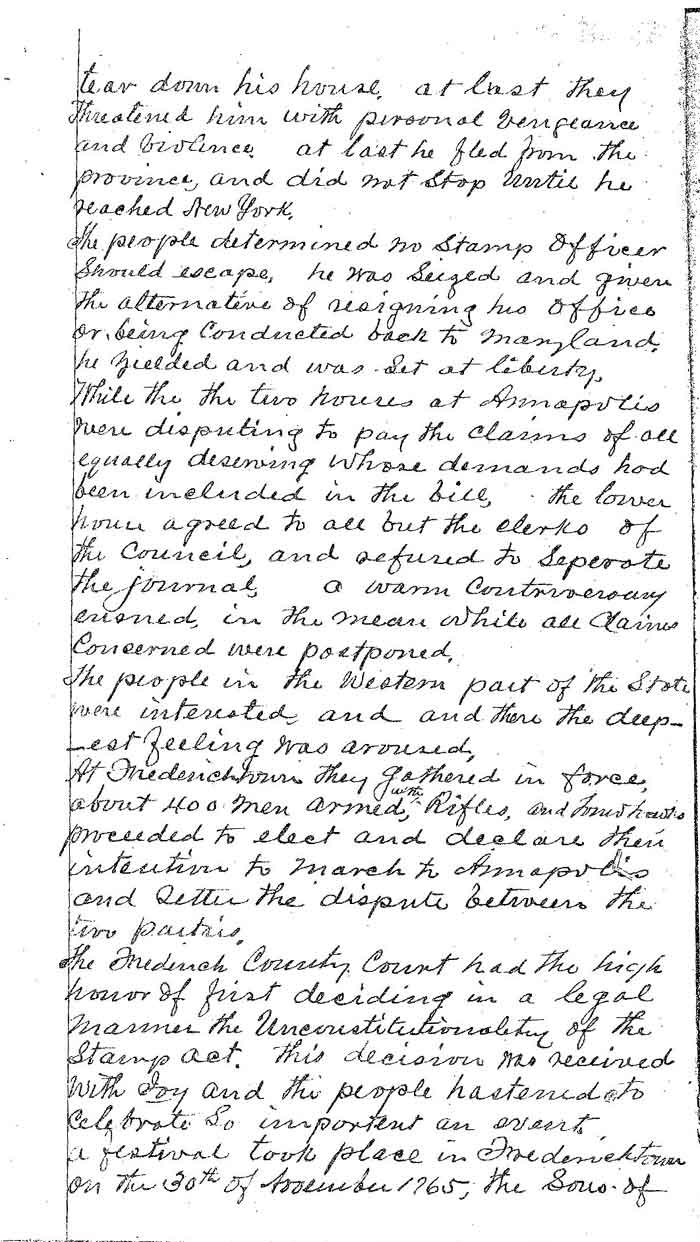 tear down his house. at last they
threatened him with personal vengeance
and violence. at last he fled from the
province, and did not stop until he
reached New York.
The people determined no Stamp Officer
should escape, he was seized and given
the alternative of resigning his office
or being conducted back to Maryland.
he yielded and was set at liberty.
While the the two houses at Annapolis
were disputing to pay the claims of all
equally deserving whose demands had
been included in the bill, the lower
house agreed to all but the clerks of
the Council, and refused to Seperate
the journal, a warm Contriversary
ensued, in the mean while all Claims
Concerned were postponed.
The people in the Western part of the State
were interested, and and there the deep-
-est feeling was aroused,
At Fredericktown they gathered in force,
about 400 men armed, with Rifles, and Tomhawks
proceeded to elect and declare their
intention to march to Annapolis
and settle the dispute between the
two parties.
The Frederick County Court had the high
honor of first deciding in a legal
manner the Unconstitutionality of the
Stamp act. this decision was received
with Joy and the people hastened to
Celebrate So important an event.
a festival took place in Fredericktown
on the 30th of November 1765, the Sons of